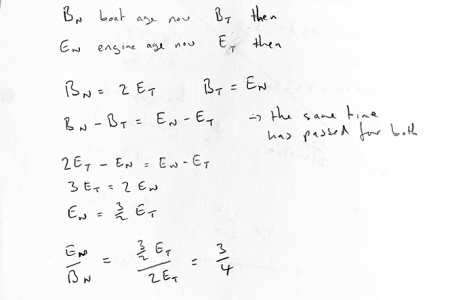 B_N boat age now B_T then
E_N engine age now E_T then
B_N = 2 E_T B_T = E_N
B_N - B_T = E_N - E_T → the same time
has passed for both
2E_T - E_N = E_N - E_T
3 E_T = 2 E_N
E_N = 3/2 E_T
E_N/B_N = (3/2 E_T)/(2E_T) = 3/4